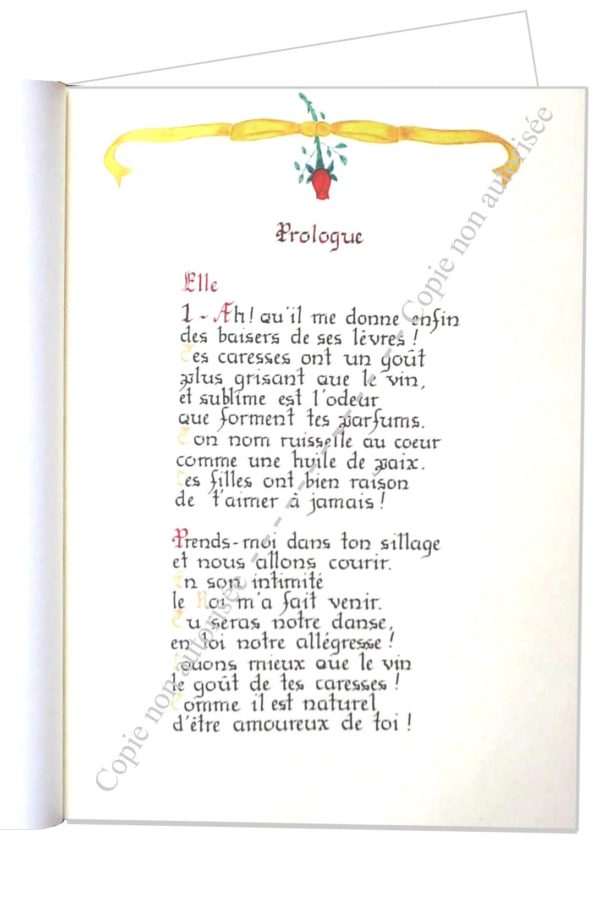 Prologue
Elle
1 - Ah! qu'il me donne enfin
des baisers de ses lèvres !
Tes caresses ont un goût
plus grisant que le vin,
et sublime est l'odeur
que forment tes parfums.
Ton nom ruisselle au coeur
comme une huile de paix.
Les filles ont bien raison
de t'aimer à jamais !
Prends-moi dans ton sillage
et nous allons courir.
En son intimité
le Roi m'a fait venir.
Tu seras notre danse,
en toi notre allégresse !
Louons mieux que le vin
le goût de tes caresses !
Comme il est naturel
d'être amoureux de toi !
Copie non autorisée --- Copie non autorisée